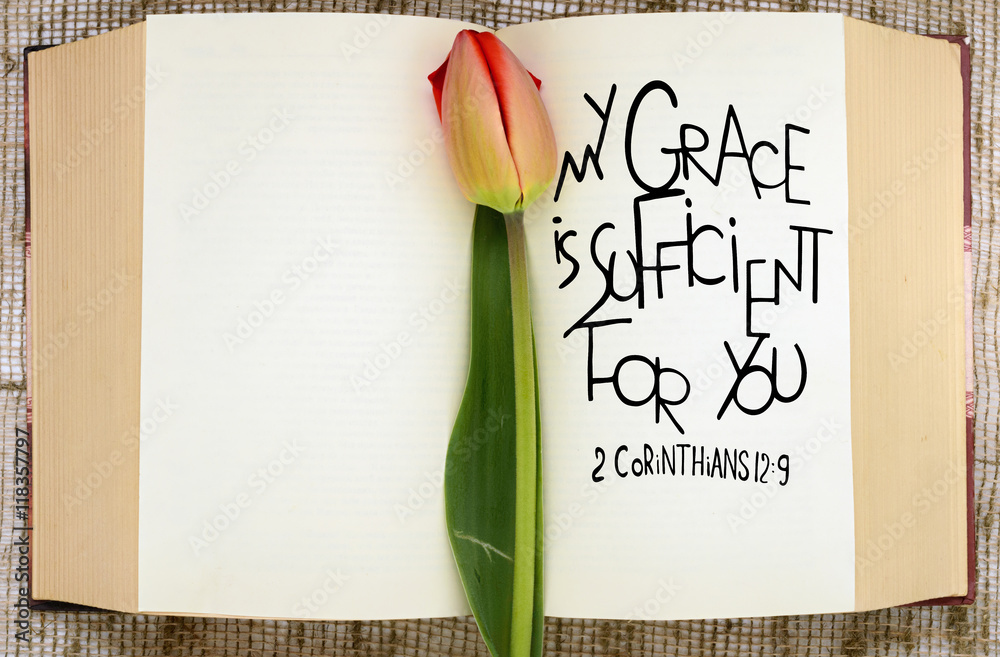 MY GRACE
is SUFFiCiENT
FOR YOU
2 CORiNTHiANS 12:9
Adobe Stock | #118357797